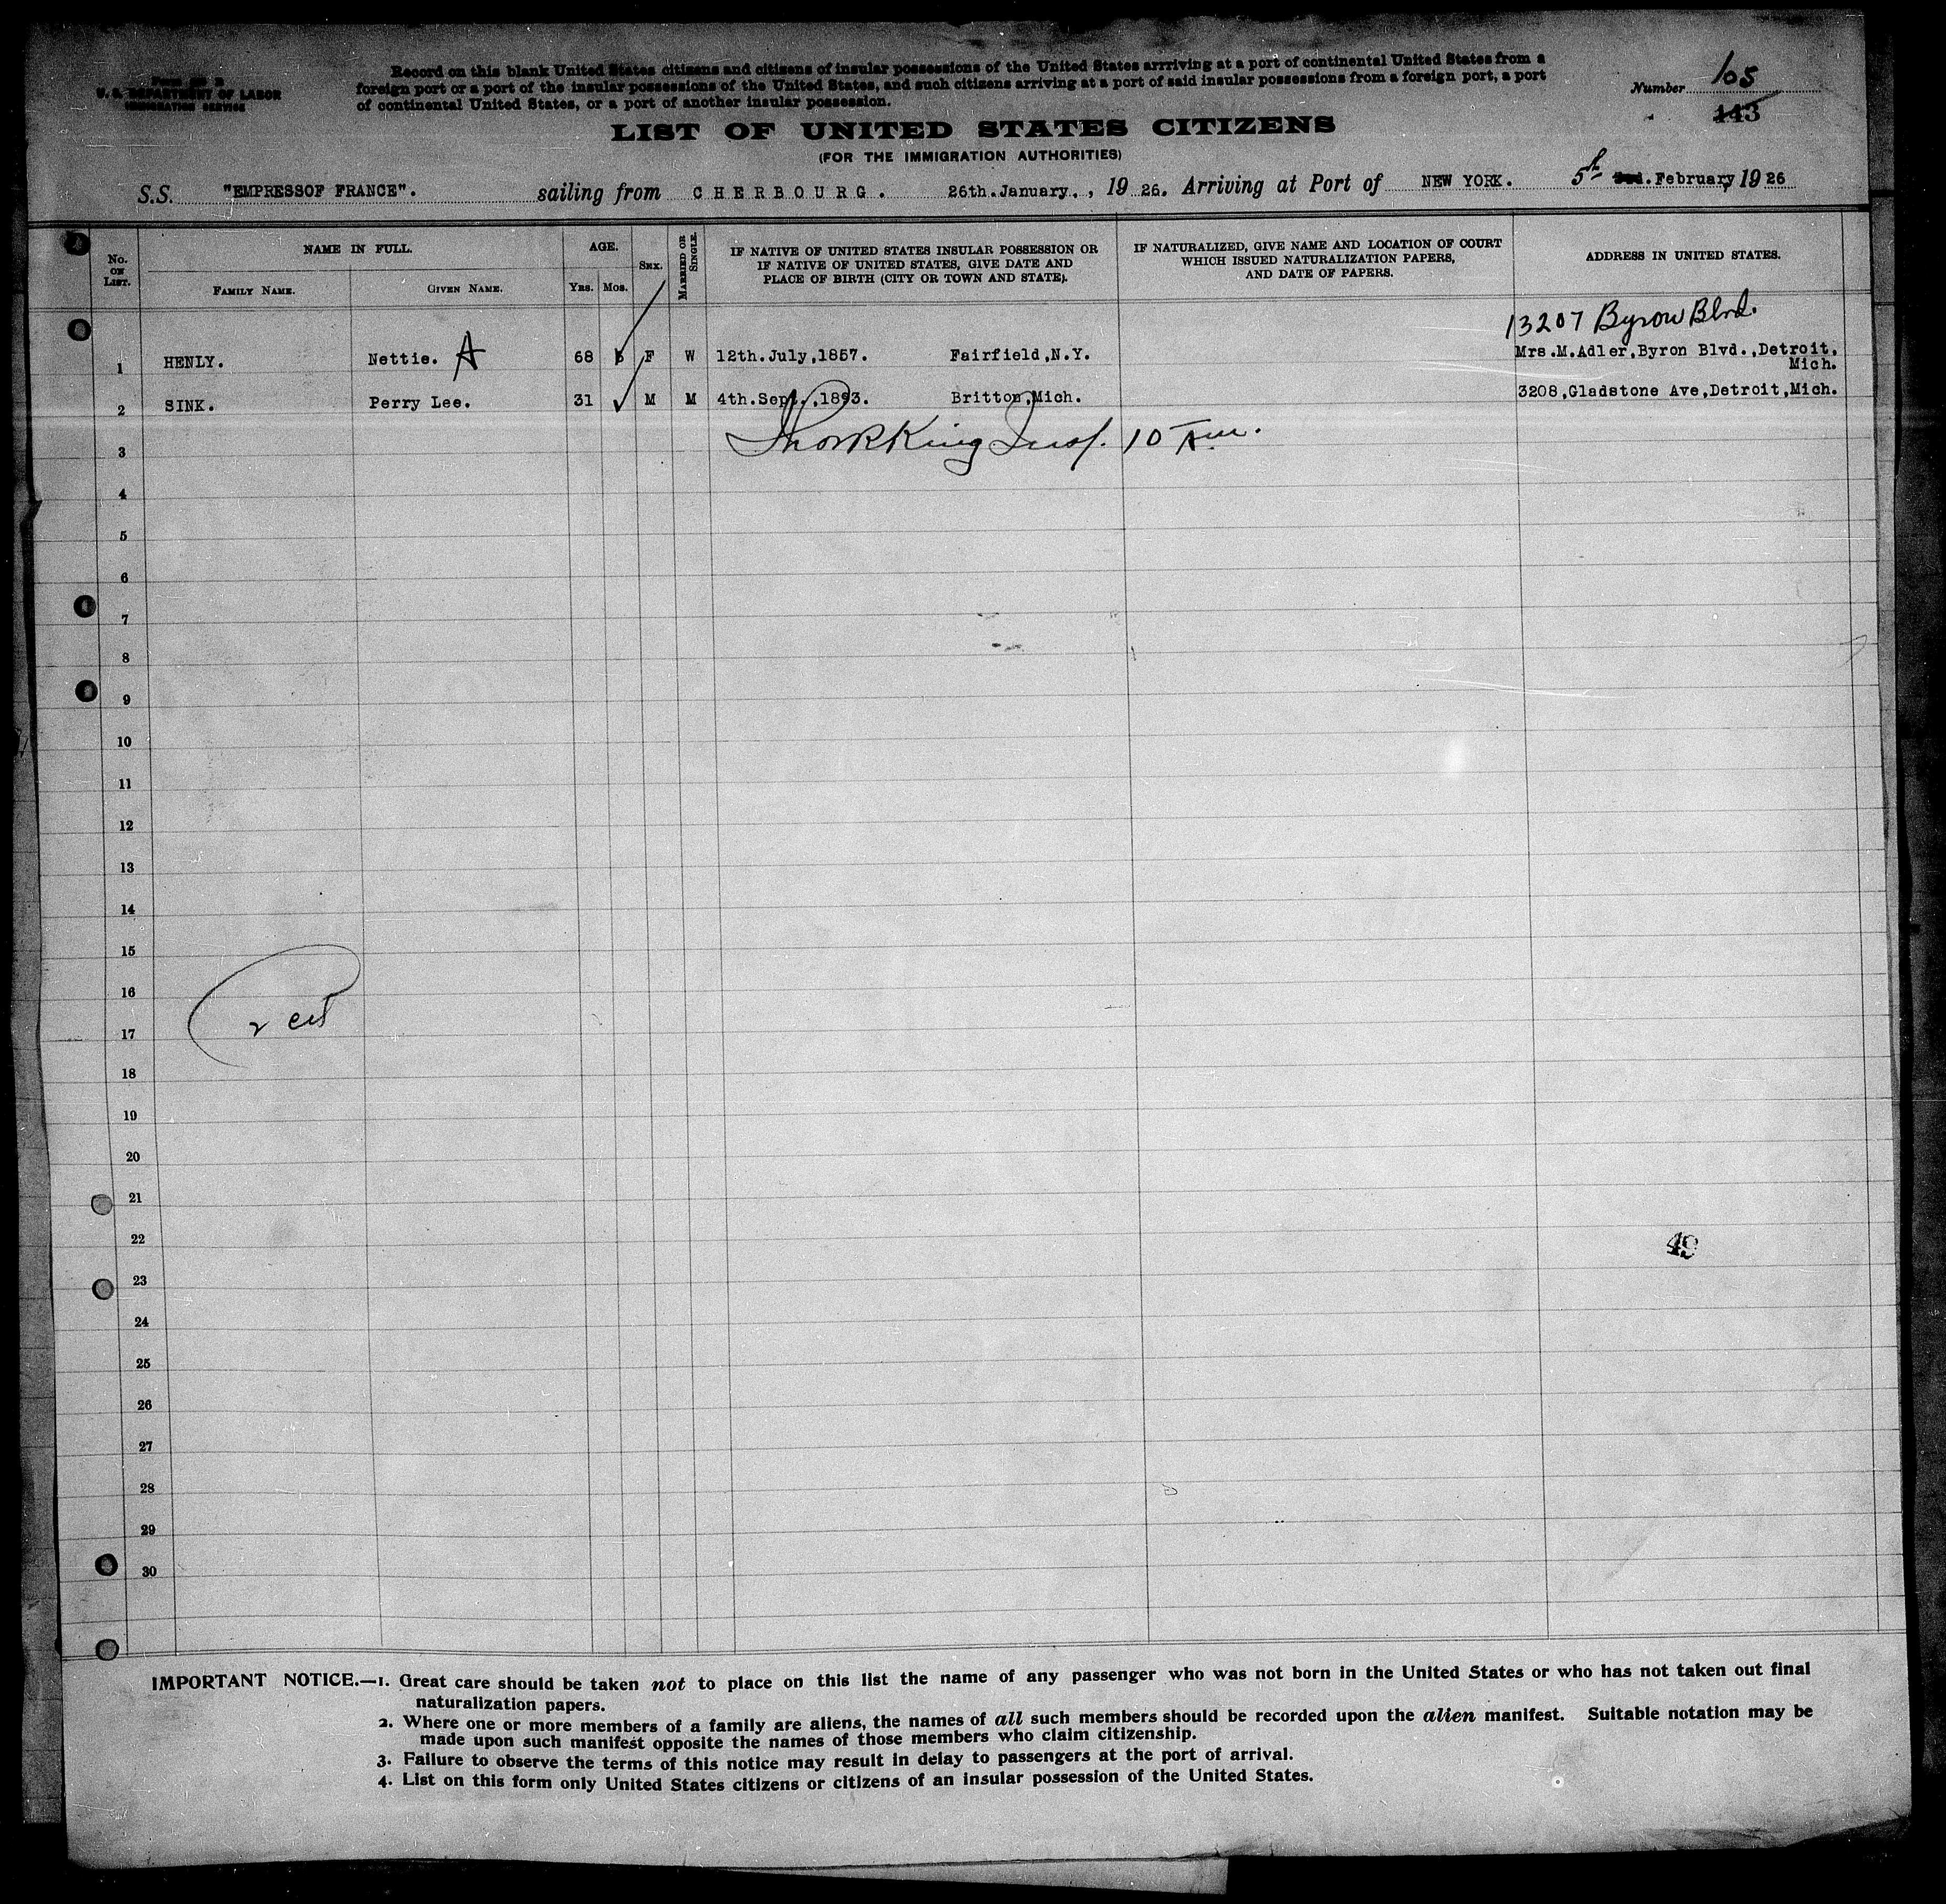 U. S. DEPARTMENT OF LABOR
IMMIGRATION SERVICE
Record on this blank United States citizens and citizens of insular possessions of the United States arrriving at a port of continental United States from a
foreign port or a port of the insular possessions of the United States, and such citizens arriving at a port of said insular possessions from a foreign port, a port
of continental United States, or a port of another insular possession.
Number 105
143
LIST OF UNITED STATES CITIZENS
(FOR THE IMMIGRATION AUTHORITIES)
S.S. "EMPRESSOF FRANCE". sailing from CHERBOURG. 26th.January., 1926. Arriving at Port of NEW YORK. 5th February, 1926
No. ON LIST. NAME IN FULL. AGE. SEX. MARRIED OR SINGLE. IF NATIVE OF UNITED STATES INSULAR POSSESSION OR IF NATIVE OF UNITED STATES, GIVE DATE AND PLACE OF BIRTH (CITY OR TOWN AND STATE). IF NATURALIZED, GIVE NAME AND LOCATION OF COURT WHICH ISSUED NATURALIZATION PAPERS, AND DATE OF PAPERS. ADDRESS IN UNITED STATES.
FAMILY NAME. GIVEN NAME. YRS. MOS.
13207 Byron Blvd.
1 HENLY. Nettie. A 68 F W 12th.July,1857. Fairfield,N.Y. Mrs.M.Adler,Byron Blvd.,Detroit,
Mich.
2 SINK. Perry Lee. 31 M M 4th.Sept.,1893. Britton,Mich. 3208,Gladstone Ave,Detroit,Mich.
3 King Insp. 10 Am.
4
5
6
7
8
9
10
11
12
13
14
15
16
17 2 cit
18
19
20
21
22 49
23
24
25
26
27
28
29
30
IMPORTANT NOTICE.—1. Great care should be taken not to place on this list the name of any passenger who was not born in the United States or who has not taken out final
naturalization papers.
2. Where one or more members of a family are aliens, the names of all such members should be recorded upon the alien manifest. Suitable notation may be
made upon such manifest opposite the names of those members who claim citizenship.
3. Failure to observe the terms of this notice may result in delay to passengers at the port of arrival.
4. List on this form only United States citizens or citizens of an insular possession of the United States.